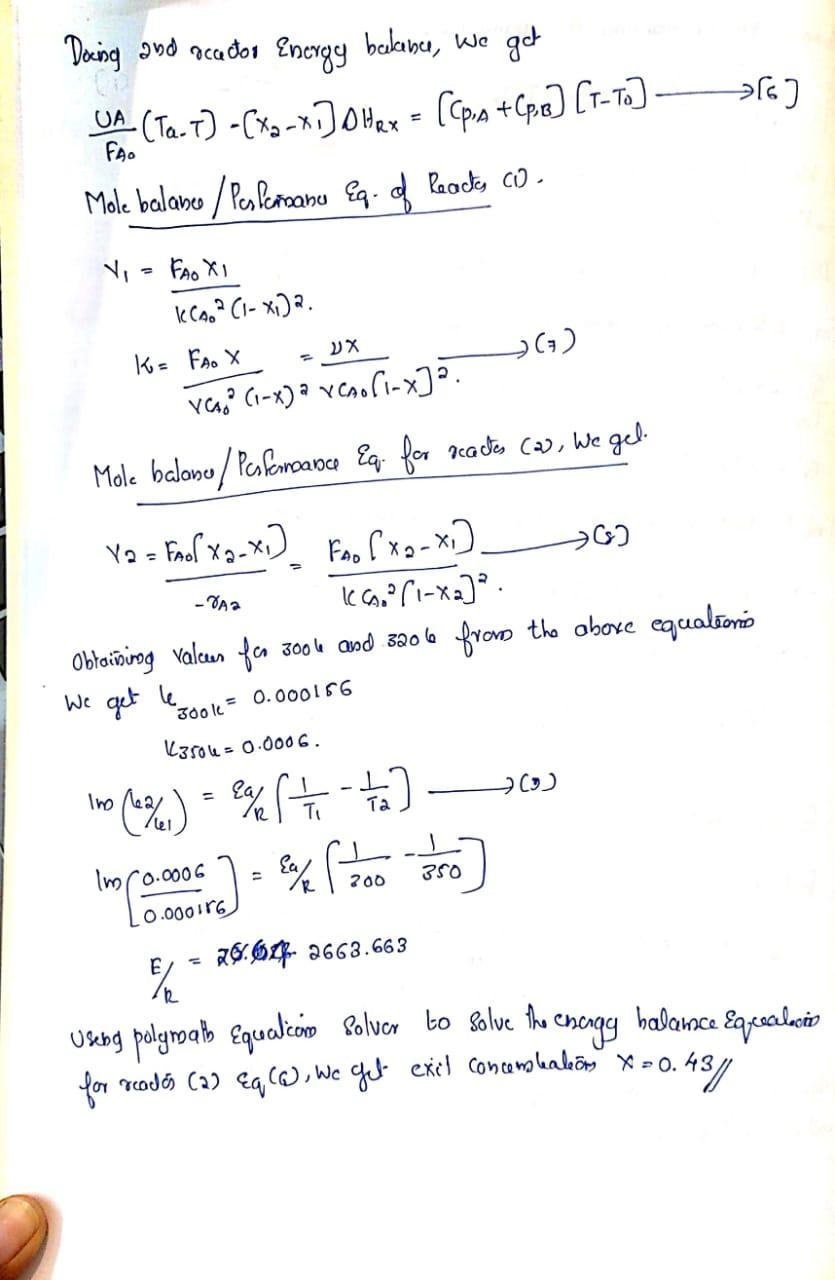 Doing 2nd reactor Energy balance, We get
UA/FA0 (Ta-T) - [X2-X1] ΔHRX = [Cp,A + Cp,B] [T-T0] → [6]
Mole balance / Performance Eq. of Reactor (1).
V1 = FA0 X1 / K CA0² (1-X1)².
K = FA0 X / V CA0² (1-X)² = νX / V CA0 [1-X]². → (7)
Mole balance / Performance Eq. for reactor (2), We get.
V2 = FA0[X2-X1] / -rA2 = FA0 [X2-X1] / K CA0² [1-X2]². → (8)
Obtaining values for 300k and 320k from the above equations
We get k300k = 0.000156
K350k = 0.0006.
ln (k2/k1) = Ea/R [1/T1 - 1/T2] → (9)
ln [0.0006 / 0.000156] = Ea/R [1/300 - 1/350]
E/R = 2663.663
Using polymath Equation Solver to Solve the energy balance Equation
for reactor (2) Eq (6), We get exit Concentration X = 0.43//